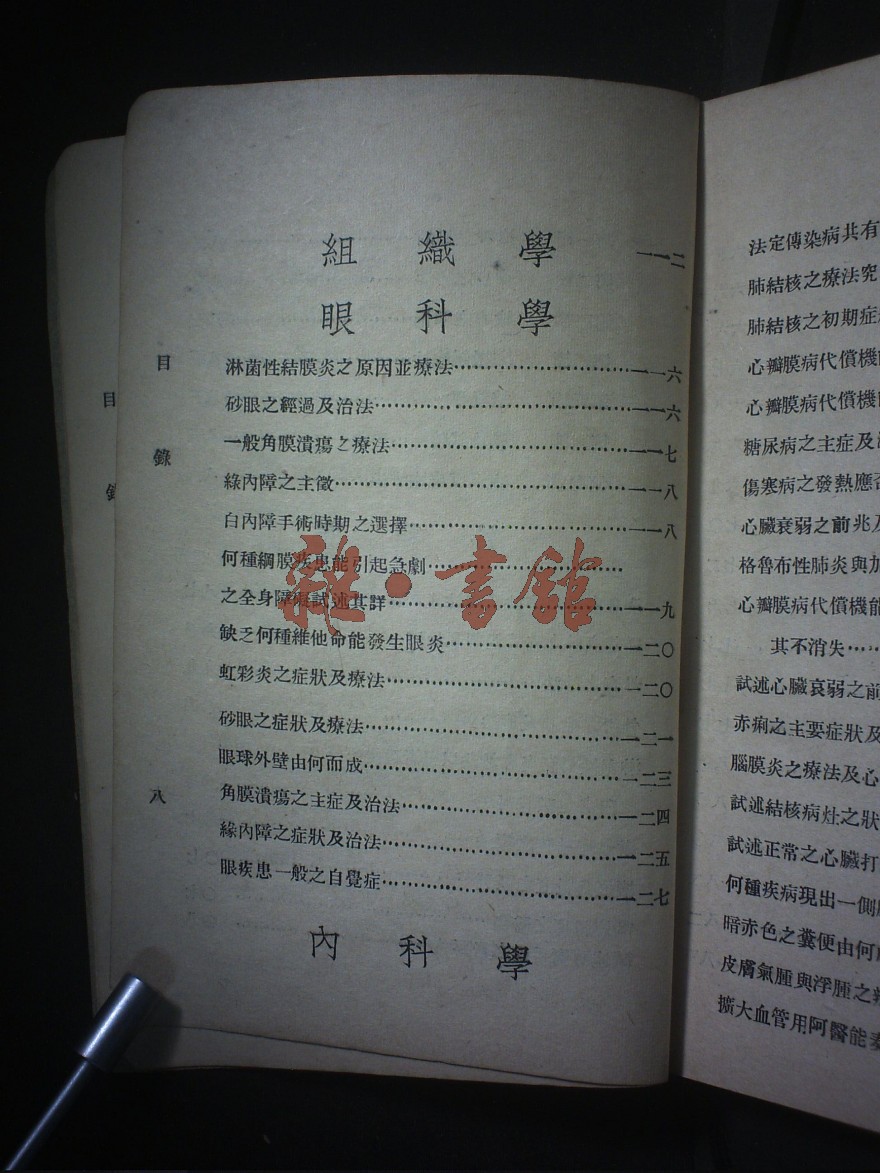 組織學 一一二
眼科學
淋菌性結膜炎之原因並療法 一一六
砂眼之經過及治法 一一六
一般角膜潰瘍之療法 一一七
綠內障之主徵 一一八
白內障手術時期之選擇 一一八
何種網膜疾患能引起急劇
之全身障礙試述其詳 一一九
缺乏何種維他命能發生眼炎 一二〇
虹彩炎之症狀及療法 一二〇
砂眼之症狀及療法 一二一
眼球外壁由何而成 一二三
角膜潰瘍之主症及治法 一二四
綠內障之症狀及治法 一二五
眼疾患一般之自覺症 一二七
內科學
目錄
八
目
雜·書館
法定傳染病共有
肺結核之療法究
肺結核之初期症
心瓣膜病代償機
心瓣膜病代償機
糖尿病之主症及
傷寒病之發熱應
心臟衰弱之前兆
格魯布性肺炎與加
心瓣膜病代償機能
其不消失
試述心臟衰弱之前
赤痢之主要症狀及
腦膜炎之療法及心
試述結核病灶之狀
試述正常之心臟打
何種疾病現出一側
暗赤色之糞便由何
皮膚氣腫與浮腫之
擴大血管用阿醫能